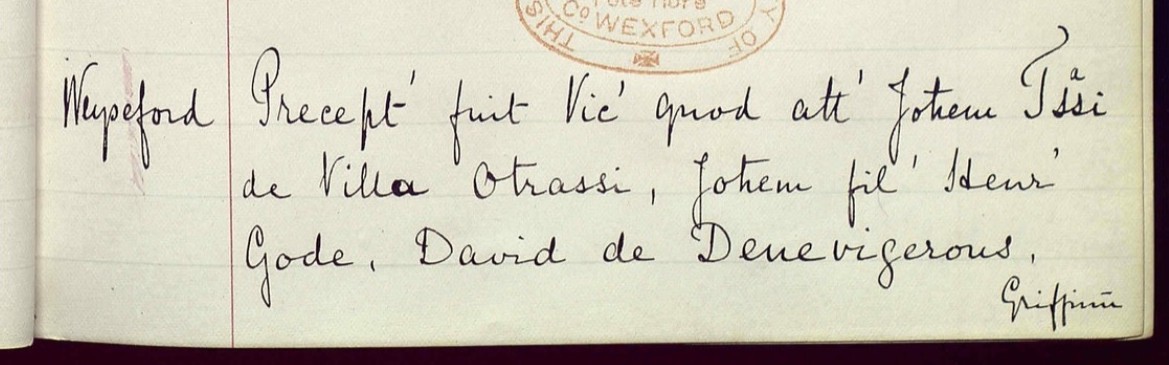 Co WEXFORD
THIS Y OF
Weyseford Precept' fuit Vic' quod att' Johem Tssi
de Villa Otrassi, Johem fil' Henr'
Gode, David de Denevigerous,
Griffinū